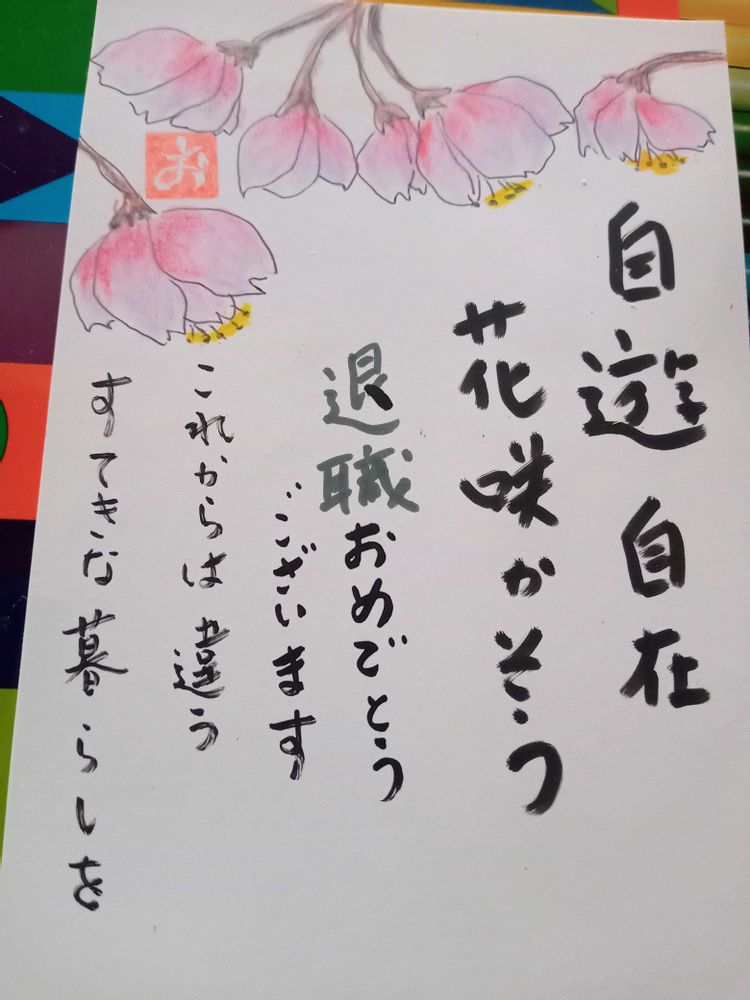 自遊自在
花咲かそう
退職おめでとう
ございます
これからは違う
すてきな暮らしを
お